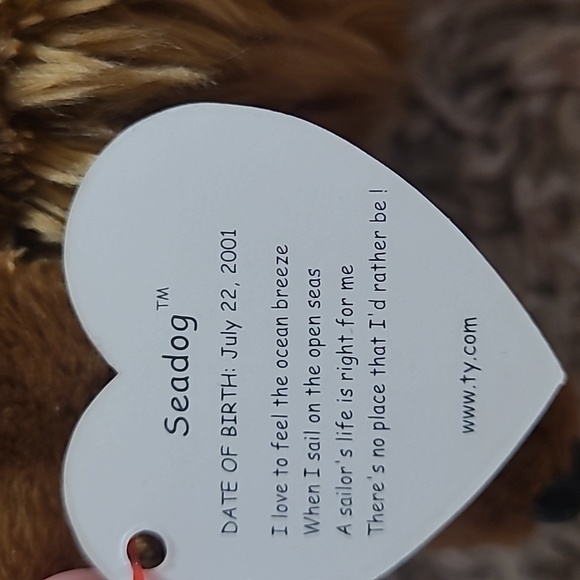 Seadog™
DATE OF BIRTH: July 22, 2001
I love to feel the ocean breeze
When I sail on the open seas
A sailor's life is right for me
There's no place that I'd rather be!
www.ty.com